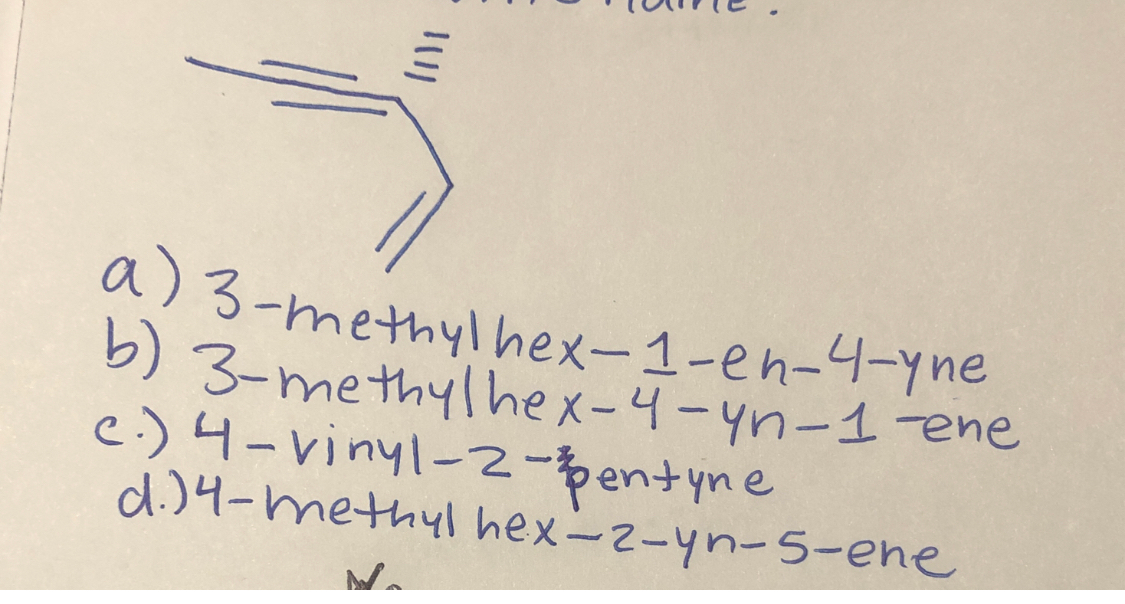 name.
a) 3-methylhex-1-en-4-yne
b) 3-methylhex-4-yn-1-ene
c.) 4-vinyl-2-pentyne
d.) 4-methylhex-2-yn-5-ene